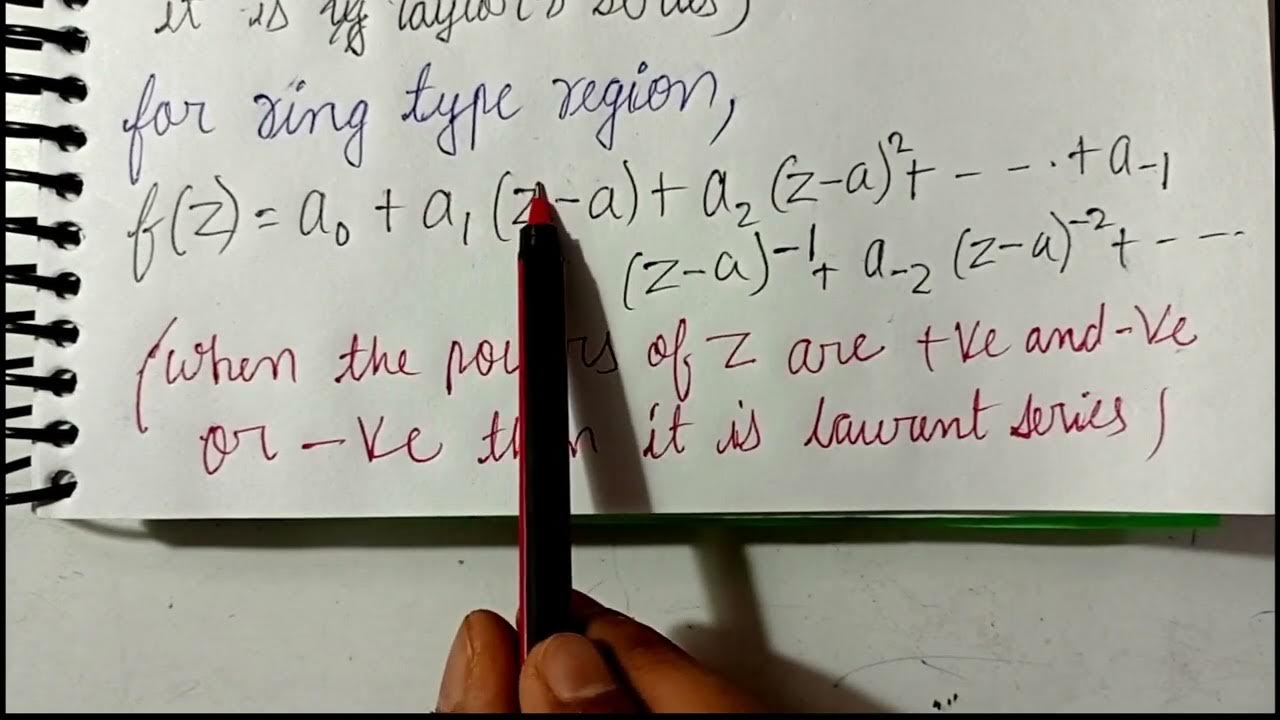 it is by taylor's series)
for ring type region,
f(z) = a₀ + a₁ (z-a) + a₂ (z-a)² + - - - . + a₋₁
(z-a)⁻¹ + a₋₂ (z-a)⁻² + - - - -
(when the powers of z are +ve and -ve
or -ve then it is laurent series)